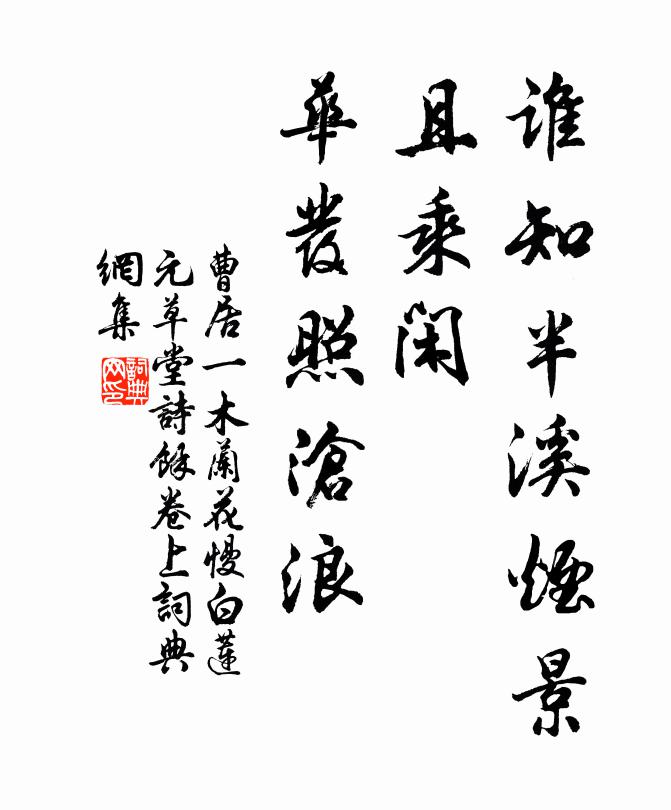 誰知半溪煙景
且乘閑
華發照滄浪
曹居一木蘭花慢白蓮
元草堂詩餘卷上詞典
網集
詞典
网印